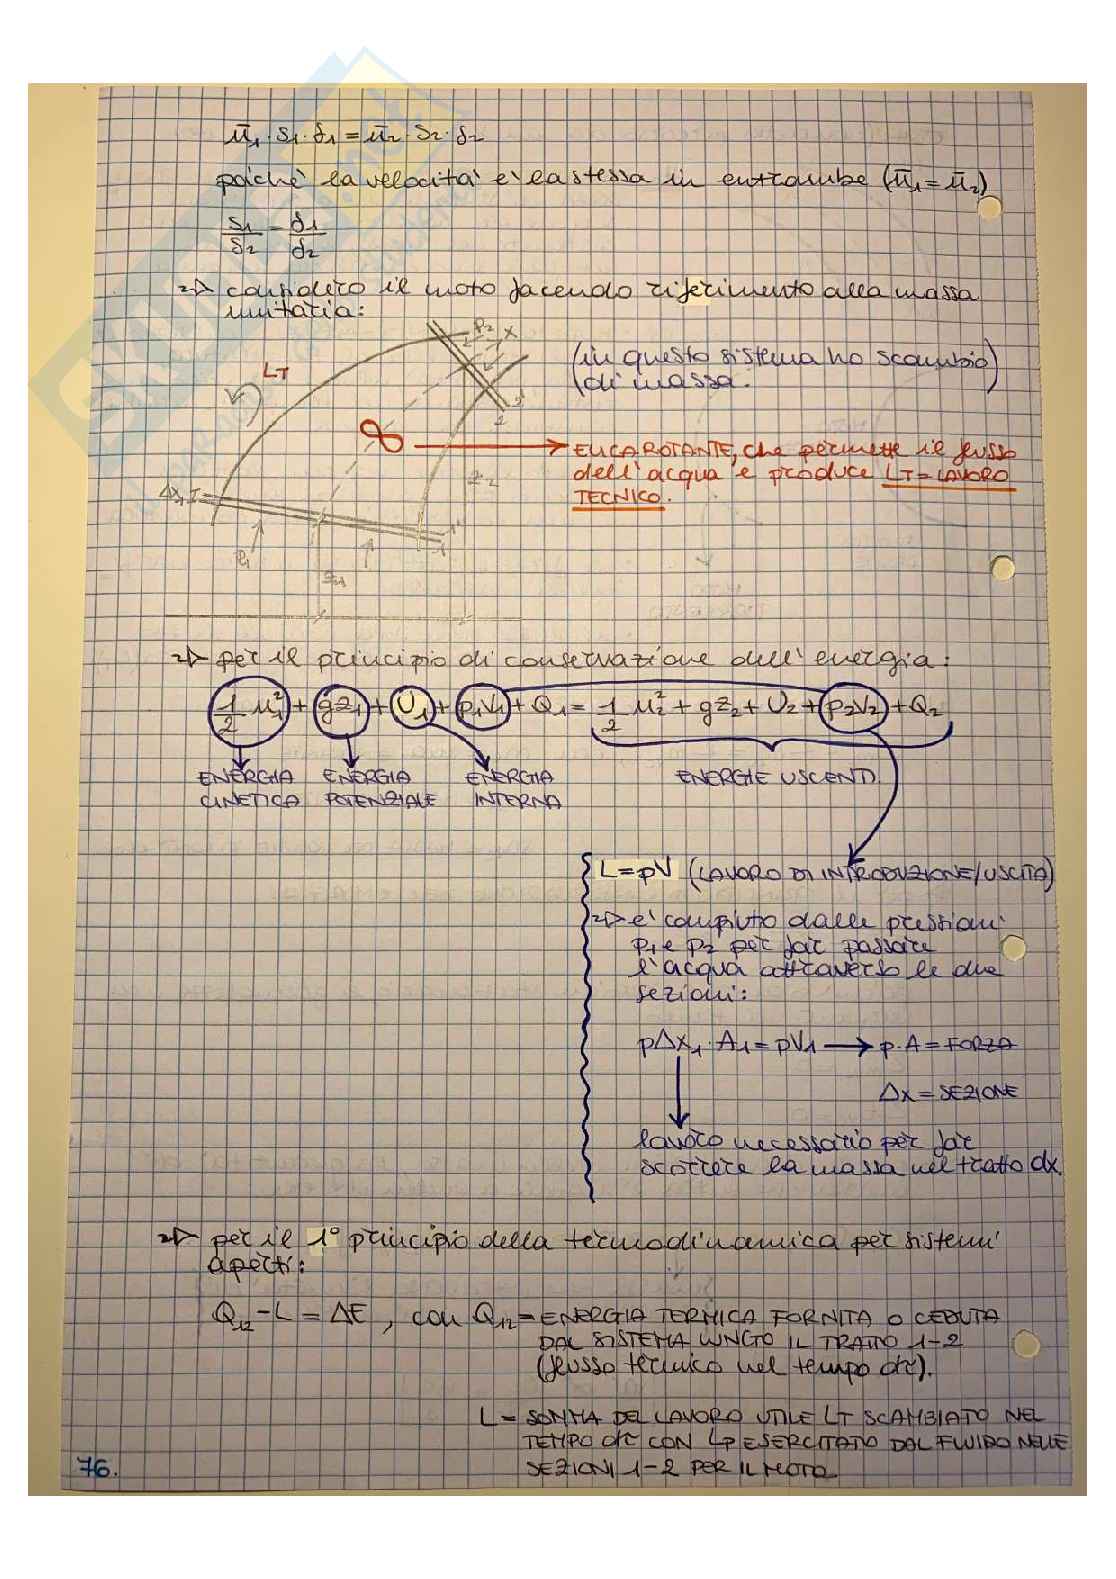 ū₁·S₁·δ₁ = ū₂·S₂·δ₂
poiché la velocità è la stessa in entrambe (ū₁ = ū₂)
S₁/S₂ = δ₁/δ₂
=> considero il moto facendo riferimento alla massa
unitaria:
P₂ X
(in questo sistema ho scambio)
(di massa.
LT
2 2'
ELICA ROTANTE, che permette il flusso
dell'acqua e produce LT = LAVORO
TECNICO.
z₂
Δx₁
1'
1
P₁
z₁
=> per il principio di conservazione dell'energia:
1/2 u₁² + gz₁ + U₁ + p₁V₁ + Q₁ = 1/2 u₂² + gz₂ + U₂ + p₂V₂ + Q₂
ENERGIA ENERGIA ENERGIA ENERGIE USCENTI
CINETICA POTENZIALE INTERNA
L = pV (LAVORO DI INTRODUZIONE/USCITA)
=> è compiuto dalle pressioni
p₁ e p₂ per far passare
l'acqua attraverso le due
sezioni:
pΔx₁·A₁ = pV₁ → p·A = FORZA
Δx = SEZIONE
lavoro necessario per far
scorrere la massa nel tratto dx.
=> per il 1° principio della termodinamica per sistemi
aperti:
Q₁₂ - L = ΔE , con Q₁₂ = ENERGIA TERMICA FORNITA O CEDUTA
DAL SISTEMA LUNGO IL TRATTO 1-2
(flusso termico nel tempo dτ).
L = SOMMA DEL LAVORO UTILE LT SCAMBIATO NEL
TEMPO dτ CON Lp ESERCITATO DAL FLUIDO NELLE
SEZIONI 1-2 PER IL MOTO
76.